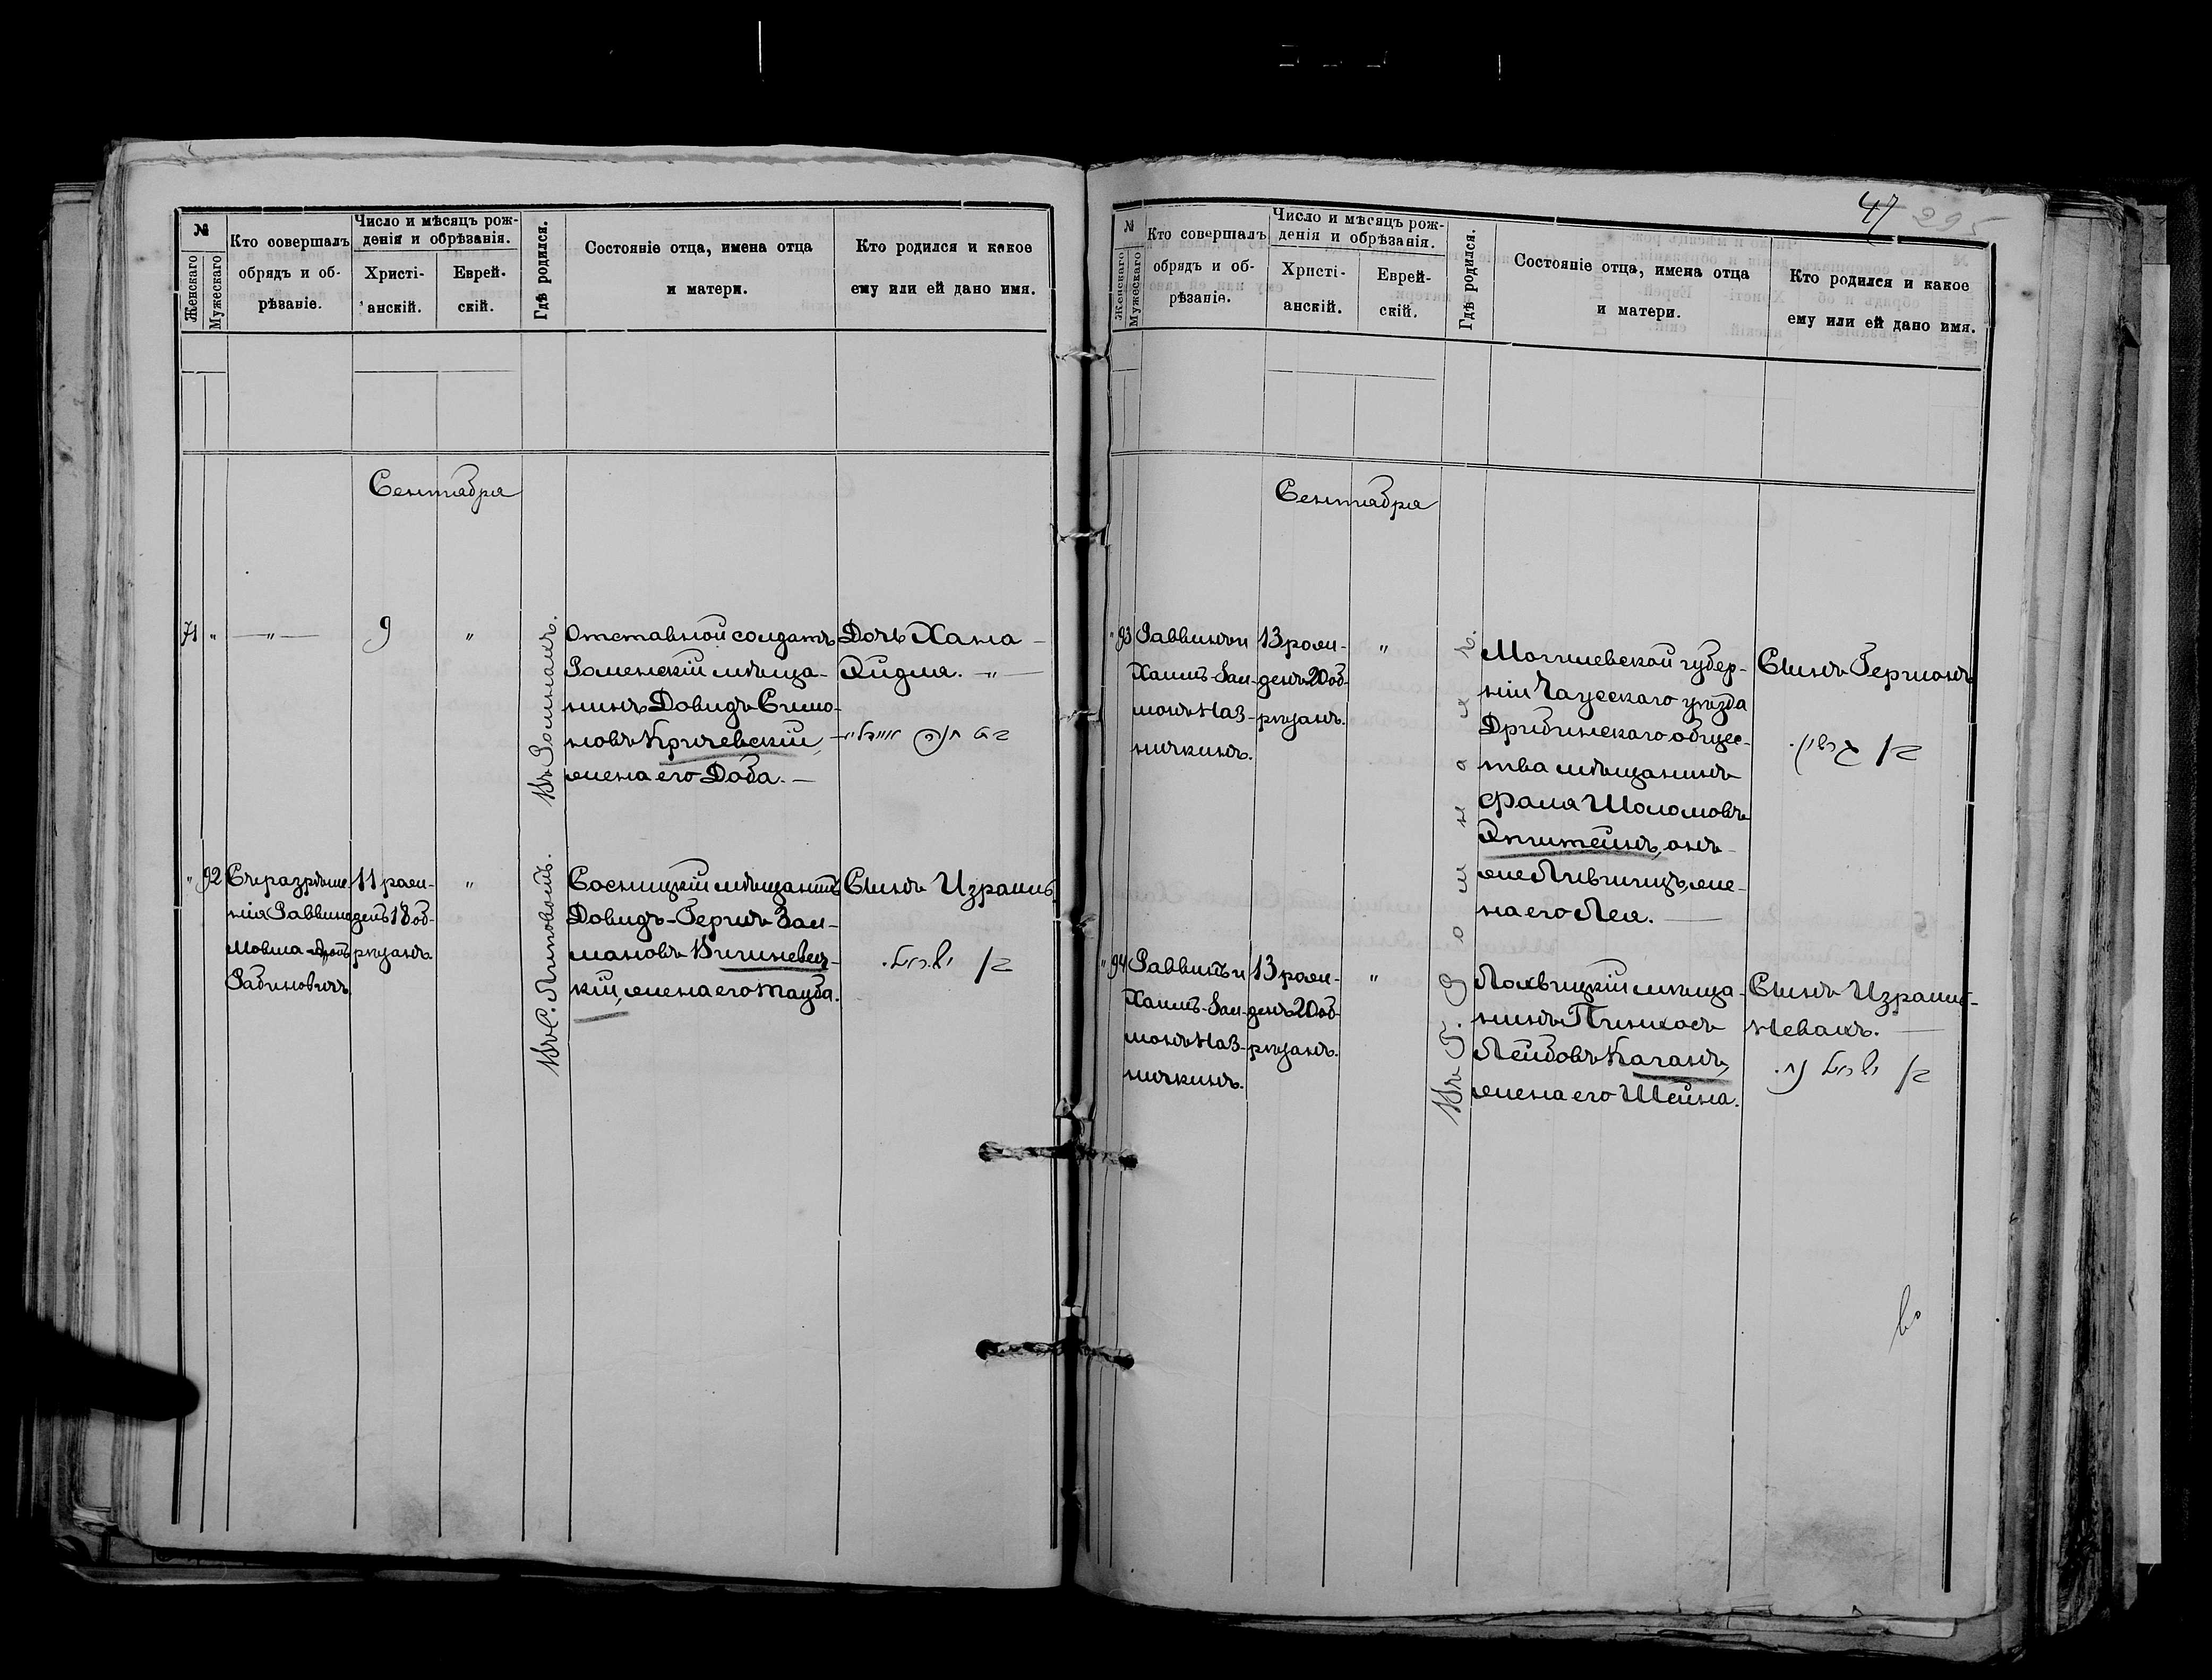 №
Женскаго
Мужескаго
Кто совершалъ
обрядъ и об-
рѣзаніе.
Число и мѣсяцъ рож-
денія и обрѣзанія.
Христі-
анскій.
Еврей-
скій.
Гдѣ родился.
Состояніе отца, имена отца
и матери.
Кто родился и какое
ему или ей дано имя.
Сентября
71 " —"— 9 "
Въ Ромнахъ.
Отставной солдатъ
Роменскій мѣща-
нинъ Довидъ Симо-
новъ Кричевскій,
жена его Доба. —
Дочь Хана —
Айдля. —"—
בת חנה איידליי
" 92
Съ разрѣше-
нія Раввина
Мовша
Рабиновичъ
11 рож-
денъ 18 об-
рѣзанъ.
"
Въ С. Липовомъ.
Сосницкій мѣщанинъ
Довидъ-Гершъ Зал-
мановъ Вишневец-
кій, жена его Тауба.
Сынъ Израиль
בן ישראל.
47 295
№
Женскаго
Мужескаго
Кто совершалъ
обрядъ и об-
рѣзаніе.
Число и мѣсяцъ рож-
денія и обрѣзанія.
Христі-
анскій.
Еврей-
скій.
Гдѣ родился.
Состояніе отца, имена отца
и матери.
Кто родился и какое
ему или ей дано имя.
Сентября
" 93
Раввинъ и
Хаимъ-Зал-
монъ Наз-
ничкинъ.
13 рож-
денъ 20 об-
рѣзанъ.
"
Въ Г. Ромнахъ.
Могилевской губер-
ніи Чаусскаго уѣзда
Дрибинскаго общес-
тва мѣщанинъ
Фаля Шоломовъ
Эпштейнъ, онъ-
же Лившицъ, же-
на его Лея. —
Сынъ Гершонъ
בן גרשון.
" 94
Раввинъ и
Хаимъ-Зал-
монъ Наз-
ничкинъ.
13 рож-
денъ 20 об-
рѣзанъ.
"
Лохвицкій мѣща-
нинъ Пинхосъ
Лейбовъ Каганъ,
жена его Шейна.
Сынъ Израиль-
Невахъ. —
בן ישראל נח.